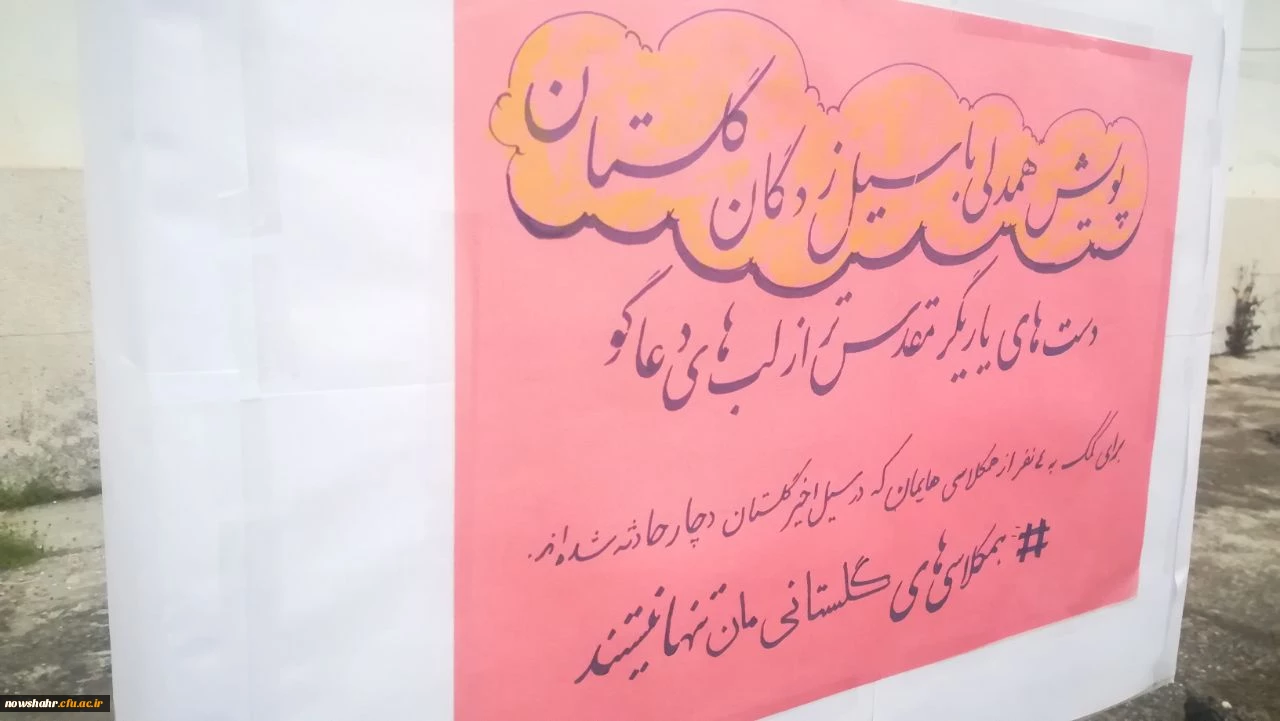 پویش همدلی با سیل زدگان گلستان
دست های یاریگر مقدس تر از لب های دعاگو
برای کمک به ٤ نفر از همکلاسی هایمان که در سیل اخیر گلستان دچار حادثه شده اند.
#همکلاسی های گلستانی مان تنها نیستند
nowshahr.cfu.ac.ir